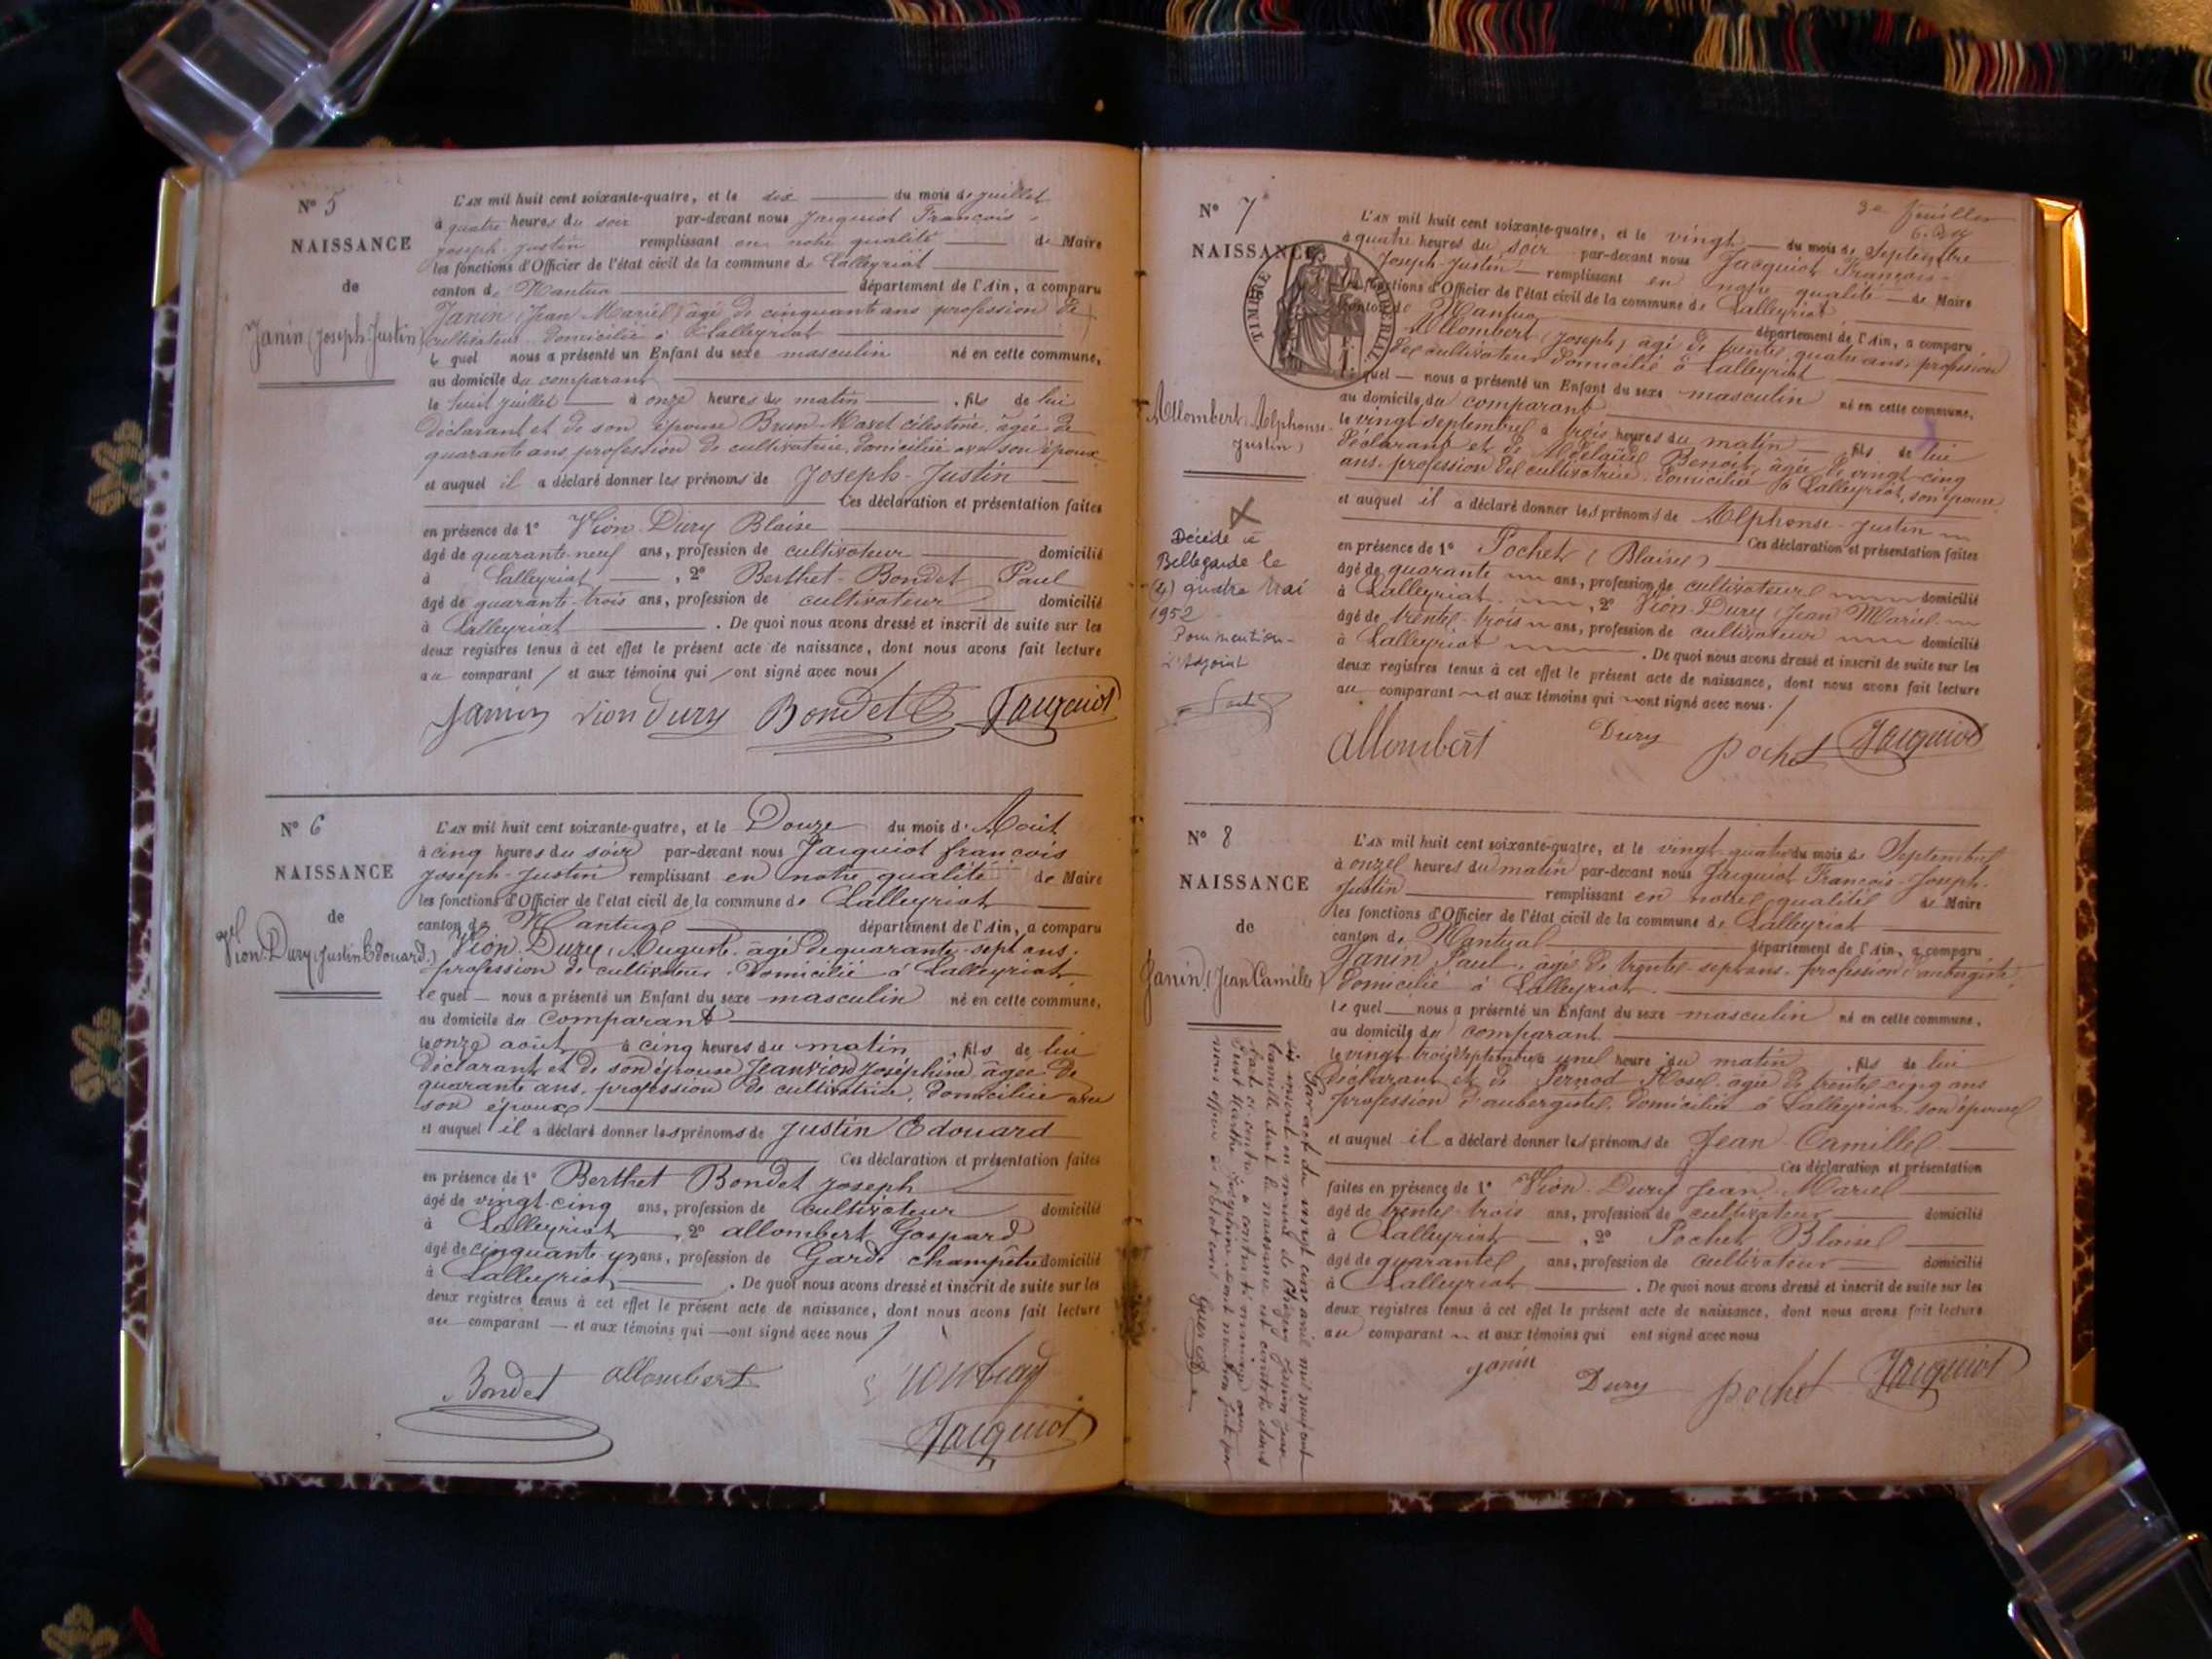 N° 5
NAISSANCE
de
Janin (Joseph-Justin)
L'AN mil huit cent soixante-quatre, et le dix du mois de juillet
à quatre heures du soir par-devant nous Jacquiot François-
joseph-justin remplissant en notre qualité de Maire
les fonctions d'Officier de l'état civil de la commune de Lalleyriat
canton de Mantua département de l'Ain, a comparu
Janin (Jean Marie) âgé de cinquante ans profession de
cultivateur domicilié à Lalleyriat
le quel nous a présenté un Enfant du sexe masculin né en cette commune,
au domicile du comparant
le huit juillet à onze heures du matin, fils de lui
déclarant et de son épouse Brun-Maret célestine, âgée de
quarante ans, profession de cultivatrice, domiciliée avec son époux
et auquel il a déclaré donner les prénoms de Joseph-Justin
Ces déclaration et présentation faites
en présence de 1° Vion-Dury Blaise
âgé de quarante-neuf ans, profession de cultivateur domicilié
à Lalleyriat, 2° Berthet-Bondet Paul
âgé de quarante-trois ans, profession de cultivateur domicilié
à Lalleyriat. De quoi nous avons dressé et inscrit de suite sur les
deux registres tenus à cet effet le présent acte de naissance, dont nous avons fait lecture
au comparant / et aux témoins qui / ont signé avec nous /
Janin Vion Dury Bondet Jacquiot
N° 6
NAISSANCE
de
Vion-Dury (Justin Edouard)
L'AN mil huit cent soixante-quatre, et le Douze du mois d'Août
à cinq heures du soir par-devant nous Jacquiot françois
joseph-justin remplissant en notre qualité de Maire
les fonctions d'Officier de l'état civil de la commune de Lalleyriat
canton de Mantua département de l'Ain, a comparu
Vion-Dury, Auguste, âgé de quarante-sept ans,
profession de cultivateur domicilié à Lalleyriat
le quel nous a présenté un Enfant du sexe masculin né en cette commune,
au domicile du comparant
le onze août à cinq heures du matin, fils de lui
déclarant et de son épouse Jeanvion joséphine âgée de
quarante ans, profession de cultivatrice, domiciliée avec
son époux
et auquel il a déclaré donner les prénoms de justin Edouard
Ces déclaration et présentation faites
en présence de 1° Berthet Bondet joseph
âgé de vingt-cinq ans, profession de cultivateur domicilié
à Lalleyriat, 2° allombert Gaspard
âgé de cinquante ans, profession de Garde champêtre domicilié
à Lalleyriat. De quoi nous avons dressé et inscrit de suite sur les
deux registres tenus à cet effet le présent acte de naissance, dont nous avons fait lecture
au comparant — et aux témoins qui — ont signé avec nous /
Bondet allombert
Jacquiot
3e feuillet
N° 7
NAISSANCE
TIMBRE IMPERIAL
Allombert, Alphonse-
Justin)
L'AN mil huit cent soixante-quatre, et le vingt du mois de Septembre
à quatre heures du soir par-devant nous Jacquiot François-
Joseph-Justin remplissant en notre qualité de Maire
les fonctions d'Officier de l'état civil de la commune de Lalleyriat
canton de Mantua département de l'Ain, a comparu
Allombert (Joseph) âgé de trente quatre ans, profession
de cultivateur domicilié à Lalleyriat
le quel — nous a présenté un Enfant du sexe masculin né en cette commune,
au domicile du comparant
le vingt septembre à trois heures du matin, fils de lui
déclarant et de Adélaïde Benoit, âgée de vingt-cinq
ans, profession de cultivatrice, domiciliée à Lalleyriat, son épouse
et auquel il a déclaré donner les prénoms de Alphonse-Justin
Ces déclaration et présentation faites
en présence de 1° Pochet (Blaise)
âgé de quarante ans, profession de cultivateur domicilié
à Lalleyriat, 2° Vion-Dury (Jean Marie)
âgé de trente-trois ans, profession de cultivateur domicilié
à Lalleyriat. De quoi nous avons dressé et inscrit de suite sur les
deux registres tenus à cet effet le présent acte de naissance, dont nous avons fait lecture
au comparant et aux témoins qui ont signé avec nous. /
Décédé à
Bellegarde le
(4) quatre Mai
1952
Pour mention-
L'Adjoint
allombert Dury pochet Jacquiot
N° 8
NAISSANCE
de
Janin (Jean Camille)
L'AN mil huit cent soixante-quatre, et le vingt-quatre du mois de Septembre
à onze heures du matin par-devant nous Jacquiot François-Joseph-
Justin remplissant en notre qualité de Maire
les fonctions d'Officier de l'état civil de la commune de Lalleyriat
canton de Mantua département de l'Ain, a comparu
Janin Paul, âgé de trente-sept ans, profession d'aubergiste,
domicilié à Lalleyriat
le quel nous a présenté un Enfant du sexe masculin né en cette commune,
au domicile du comparant
le vingt-trois septembre à une heure du matin, fils de lui
déclarant et de Pernod Rose, âgée de trente cinq ans
profession d'aubergiste, domiciliée à Lalleyriat son épouse
et auquel il a déclaré donner les prénoms de Jean-Camille
Ces déclaration et présentation
faites en présence de 1° Vion-Dury Jean-Marie
âgé de trente-trois ans, profession de cultivateur domicilié
à Lalleyriat, 2° Pochet Blaise
âgé de quarante ans, profession de cultivateur domicilié
à Lalleyriat. De quoi nous avons dressé et inscrit de suite sur les
deux registres tenus à cet effet le présent acte de naissance, dont nous avons fait lecture
au comparant et aux témoins qui ont signé avec nous
janin Dury pochet Jacquiot
Par acte du vingt cinq avril mil neuf cent
six inscrit en mairie de Janin Jean
Camille dont la naissance est constatée dans
l'acte ci-contre a contracté mariage avec
Marthe Joséphine dont mention faite par
nous officier de l'Etat civil